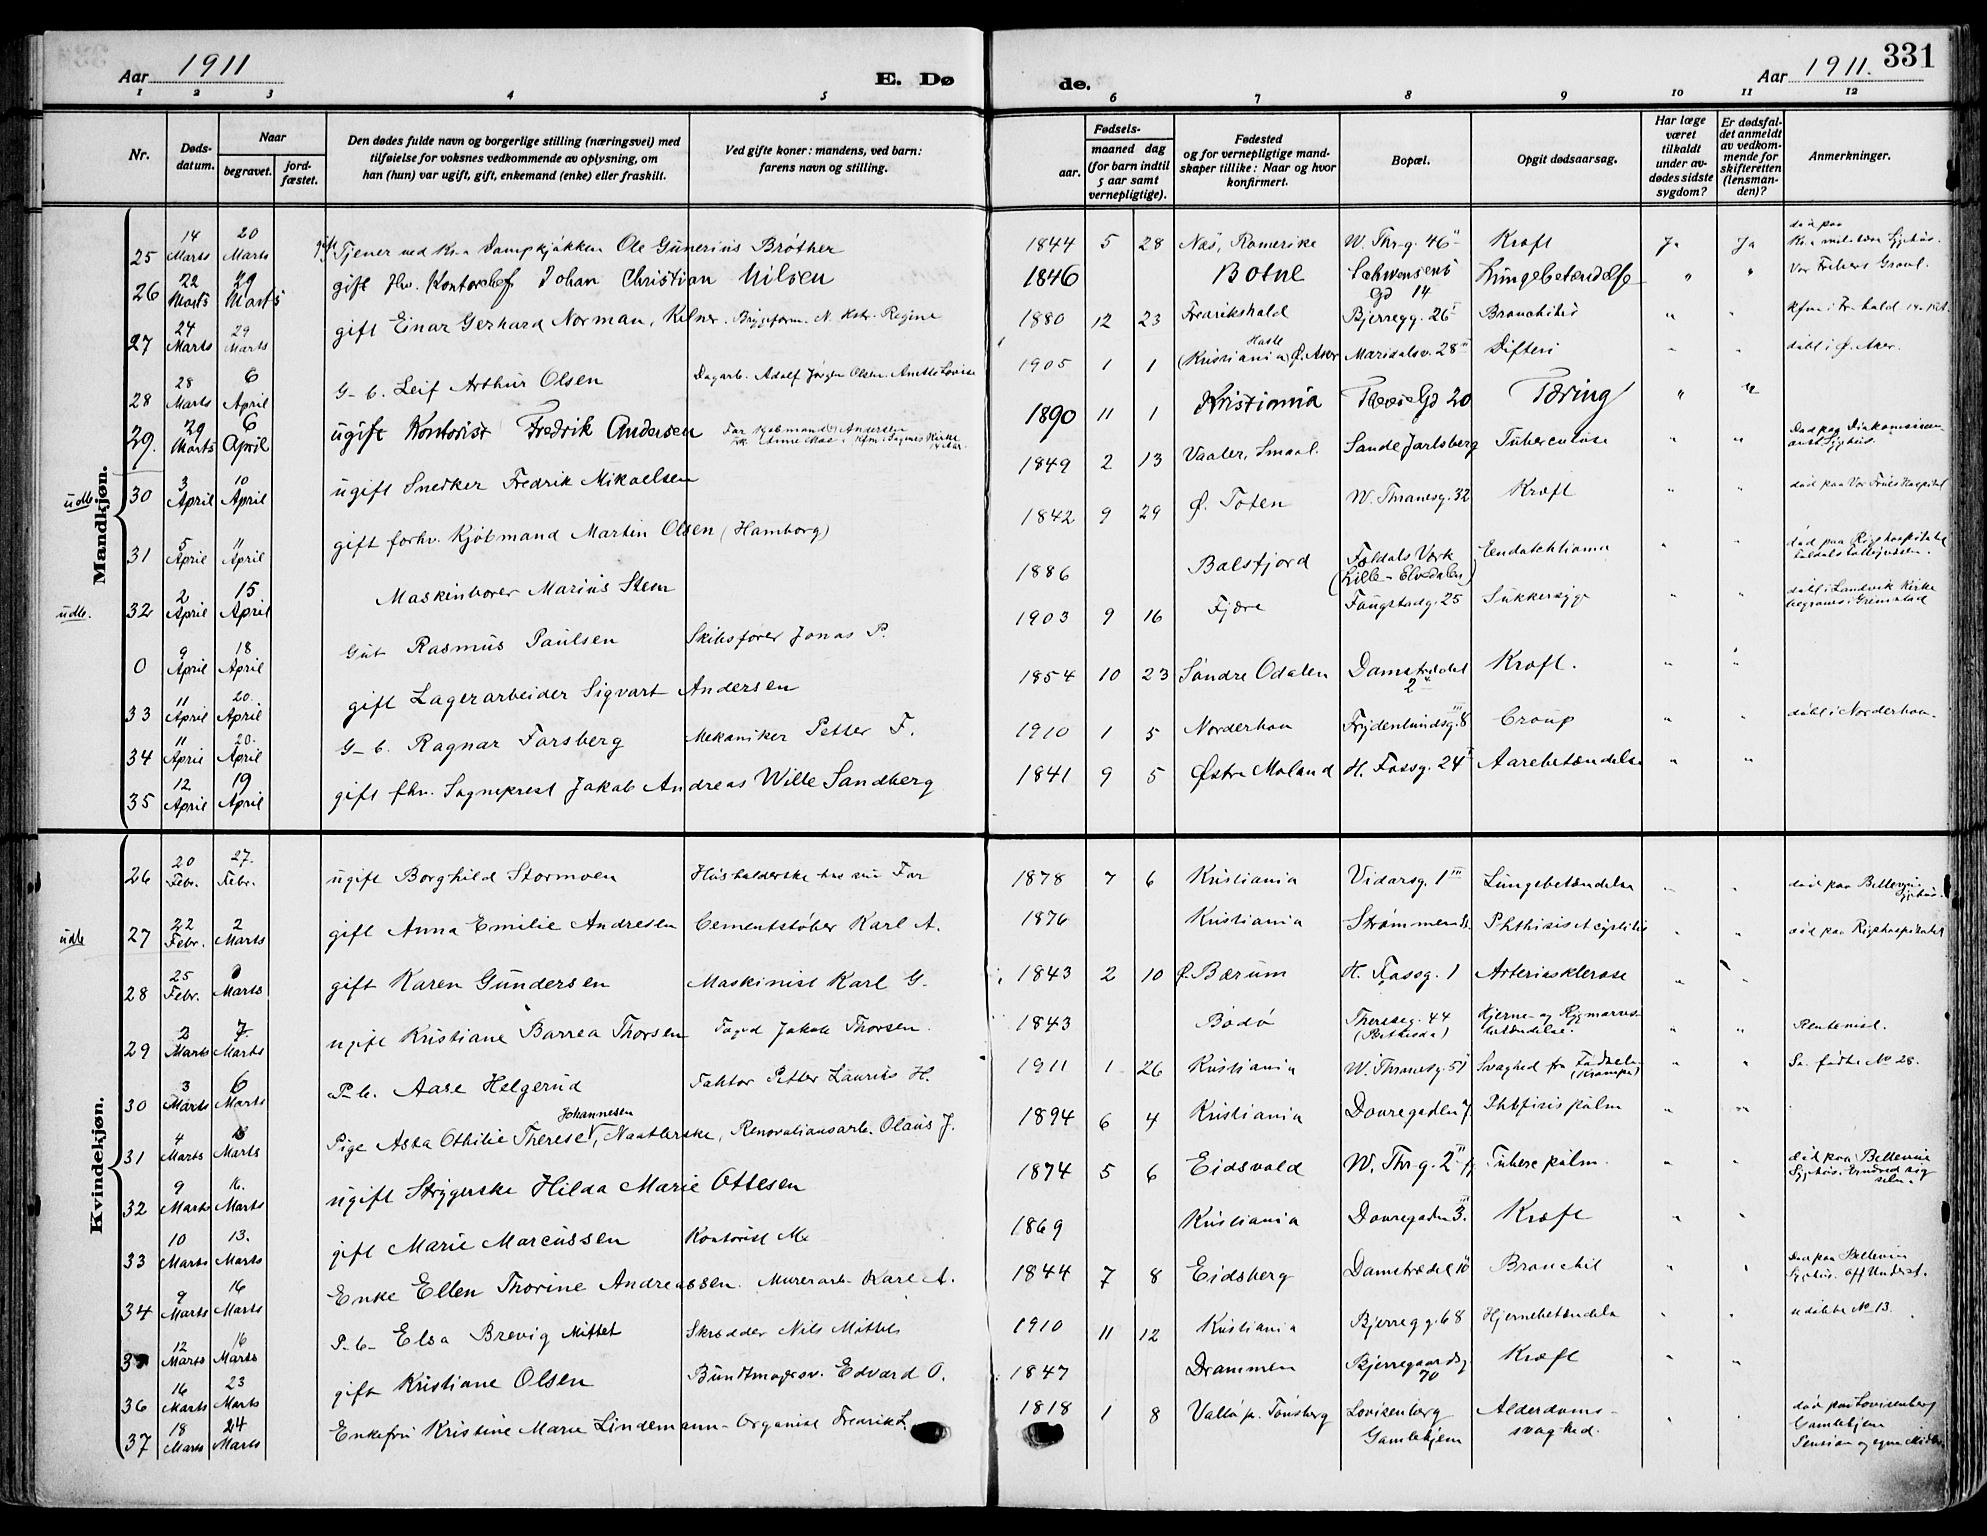 331
Aar 1911
E. Dø
de.
Aar 1911.
1 2 3 4 5 6 7 8 9 10 11 12
Nr.
Døds-
datum.
Naar
begravet.
jord-
fæstet.
Den dødes fulde navn og borgerlige stilling (næringsvei) med
tilføielse for voksnes vedkommende av oplysning, om
han (hun) var ugift, gift, enkemand (enke) eller fraskilt.
Ved gifte koner: mandens, ved barn:
farens navn og stilling.
Fødsels-
aar.
maaned dag
(for barn indtil
5 aar samt
vernepligtige).
Fødested
og for vernepligtige mand-
skaper tillike: Naar og hvor
konfirmert.
Bopæl.
Opgit dødsaarsag.
Har læge
været
tilkaldt
under av-
dødes sidste
sygdom?
Er dødsfal-
det anmeldt
av vedkom-
mende for
skifteretten
(lensman-
den)?
Anmerkninger.
Mandkjøn.
25 14 Marts 20 Marts gift Tjener ved Kr.a Dampkjøkken Ole Gunerius Brøther 1844 5 28 Næs, Romerike W. Thr-g. 46 Kræft Ja Ja død paa Kr.a militære Sygehus.
26 22 Marts 29 Marts gift Hv. Kontorchef Johan Christian Nilsen 1846 Botne Schwensens Gd 14 Lungebetændelse " " Vor Frelsers Gravl.
27 24 Marts 29 Marts gift Einar Gerhard Norman, Kelner. 1880 12 23 Fredrikshald Bjerregg. 26 Bronchitis " "
28 28 Marts 6 April G-b. Leif Arthur Olsen Dagarb. Adolf Jørgen Olsen 1905 1 1 Hasle (Kristiania) Ø. Aker Maridalsv. 28 Difteri " " døbt i Ø. Aker.
29. 29 Marts 6 April ugift Kontorist Fredrik Andersen 1890 11 1 Kristiania Gd 20 Tæring " "
udb. 30 3 April 10 April ugift Snedker Fredrik Mikaelsen 1849 2 13 Vaaler, Smaal. Sande Jarlsberg Tuberculose " "
31 5 April 11 April gift forhv. Kjøbmand Martin Olsen (Hamborg) 1842 9 29 Ø. Toten W. Thranesg. 32 Kræft " " død paa Vor Frues Hospital
udb. 32 2 April 15 April Maskinborer Marius Steen 1886 Balsfjord Foldals Verk (Lille-Elvedalen) " " død paa Rigshospitalet
0 9 April 18 April Gut Rasmus Paulsen Skibsfører Jonas P. 1903 9 16 Fjære Faugstadg. 25 Sukkersyge " " døbt i Landvik Kirke begraves i Grimstad
33 11 April 20. April gift Lagerarbeider Sigvart Andersen 1854 10 23 Søndre Odalen Damstrædet 2 Kræft. " "
34 11 April 20. April G-b. Ragnar Forsberg Mekaniker Petter F. 1910 1 5 Norderhov Frydenlundsg. 8 Croup " " døbt i Norderhov.
35 12 April 19 April gift fhv. Sogneprest Jakob Andreas Wille Sandberg 1841 9 5 Østre Moland H. Fossg. 24 Aarebetændelse " "
Kvindekjøn.
26 20 Febr. 27. Febr. ugift Borghild Stormoen Husholderske hos sin Far 1878 7 6 Kristiania Vidarsg. 1 III Lungebetændelse " " død paa Bellevue Sygehus.
udb 27 22 Febr. 2 Marts gift Anna Emilie Andresen Cementstøber Karl A. 1876 Kristiania Strømmen Phthisis et cystitis " " død paa Rigshospitalet
28 25 Febr. Marts gift Karen Gundersen Maskinist Karl G. 1843 2 10 Ø. Bærum H. Fossg. 1 Arteriosklerose " "
29 2 Marts 7 Marts ugift Kristiane Barrea Thorsen Foged Jakob Thorsen. 1843 Bodø Theresesg. 44 (Bethesda) Hjerne- og Rygmarvs- betændelse. " " Rentenist.
30 3 Marts 6 Marts P-b. Aase Helgerud Faktor Petter Laurits H. 1911 1 26 Kristiania W. Thranesg. 51 Svaghed fra Fødselen (Krampe) " " Se fødte No 28.
31 4 Marts Marts Pige Asta Othilie Therese Johannesen, Naatlerske, Renovationsarb. Olaus J. 1894 6 4 Kristiania Dovregaden 7 Phthisis pulm " "
32 9 Marts 16. Marts ugift Strygerske Hilda Marie Ottesen 1874 5 6 Eidsvold W. Thr-g. 2 Tuberc pulm. " " død paa Bellevue
33 10 Marts 13. Marts gift Marie Marcussen Kontorist M. 1869 Kristiania Dovregaden 3. Kræft " "
34 9 Marts 16 Marts Enke Ellen Thorine Andreassen. Murerarb. Karl A. 1844 7 8 Eidsberg Damstrædet 10 Bronchit " " Død paa Bellevue Sygehus. Off Underst.
35 12 Marts 16 Marts P-b- Elsa Brevig Mittet Skrædder Nils Mittet 1910 11 12 Kristiania Bjerregg. 68 Hjernebetændelse " " udøbt No 13.
36 16 Marts 23 Marts gift Kristiane Olsen Bundtmagersv. Edvard O. 1847 Drammen Bjerregaardsg 70 Kræft " "
37 18 Marts 24 Marts Enkefru Kristine Marie Lindemann- Organist Fredrik L. 1818 1 8 Vallø p. Tønsberg Lovisenberg Gamlehjem Alderdoms- svaghed. " " død paa Lovisenberg Gamlehjem Pension og egne Midler